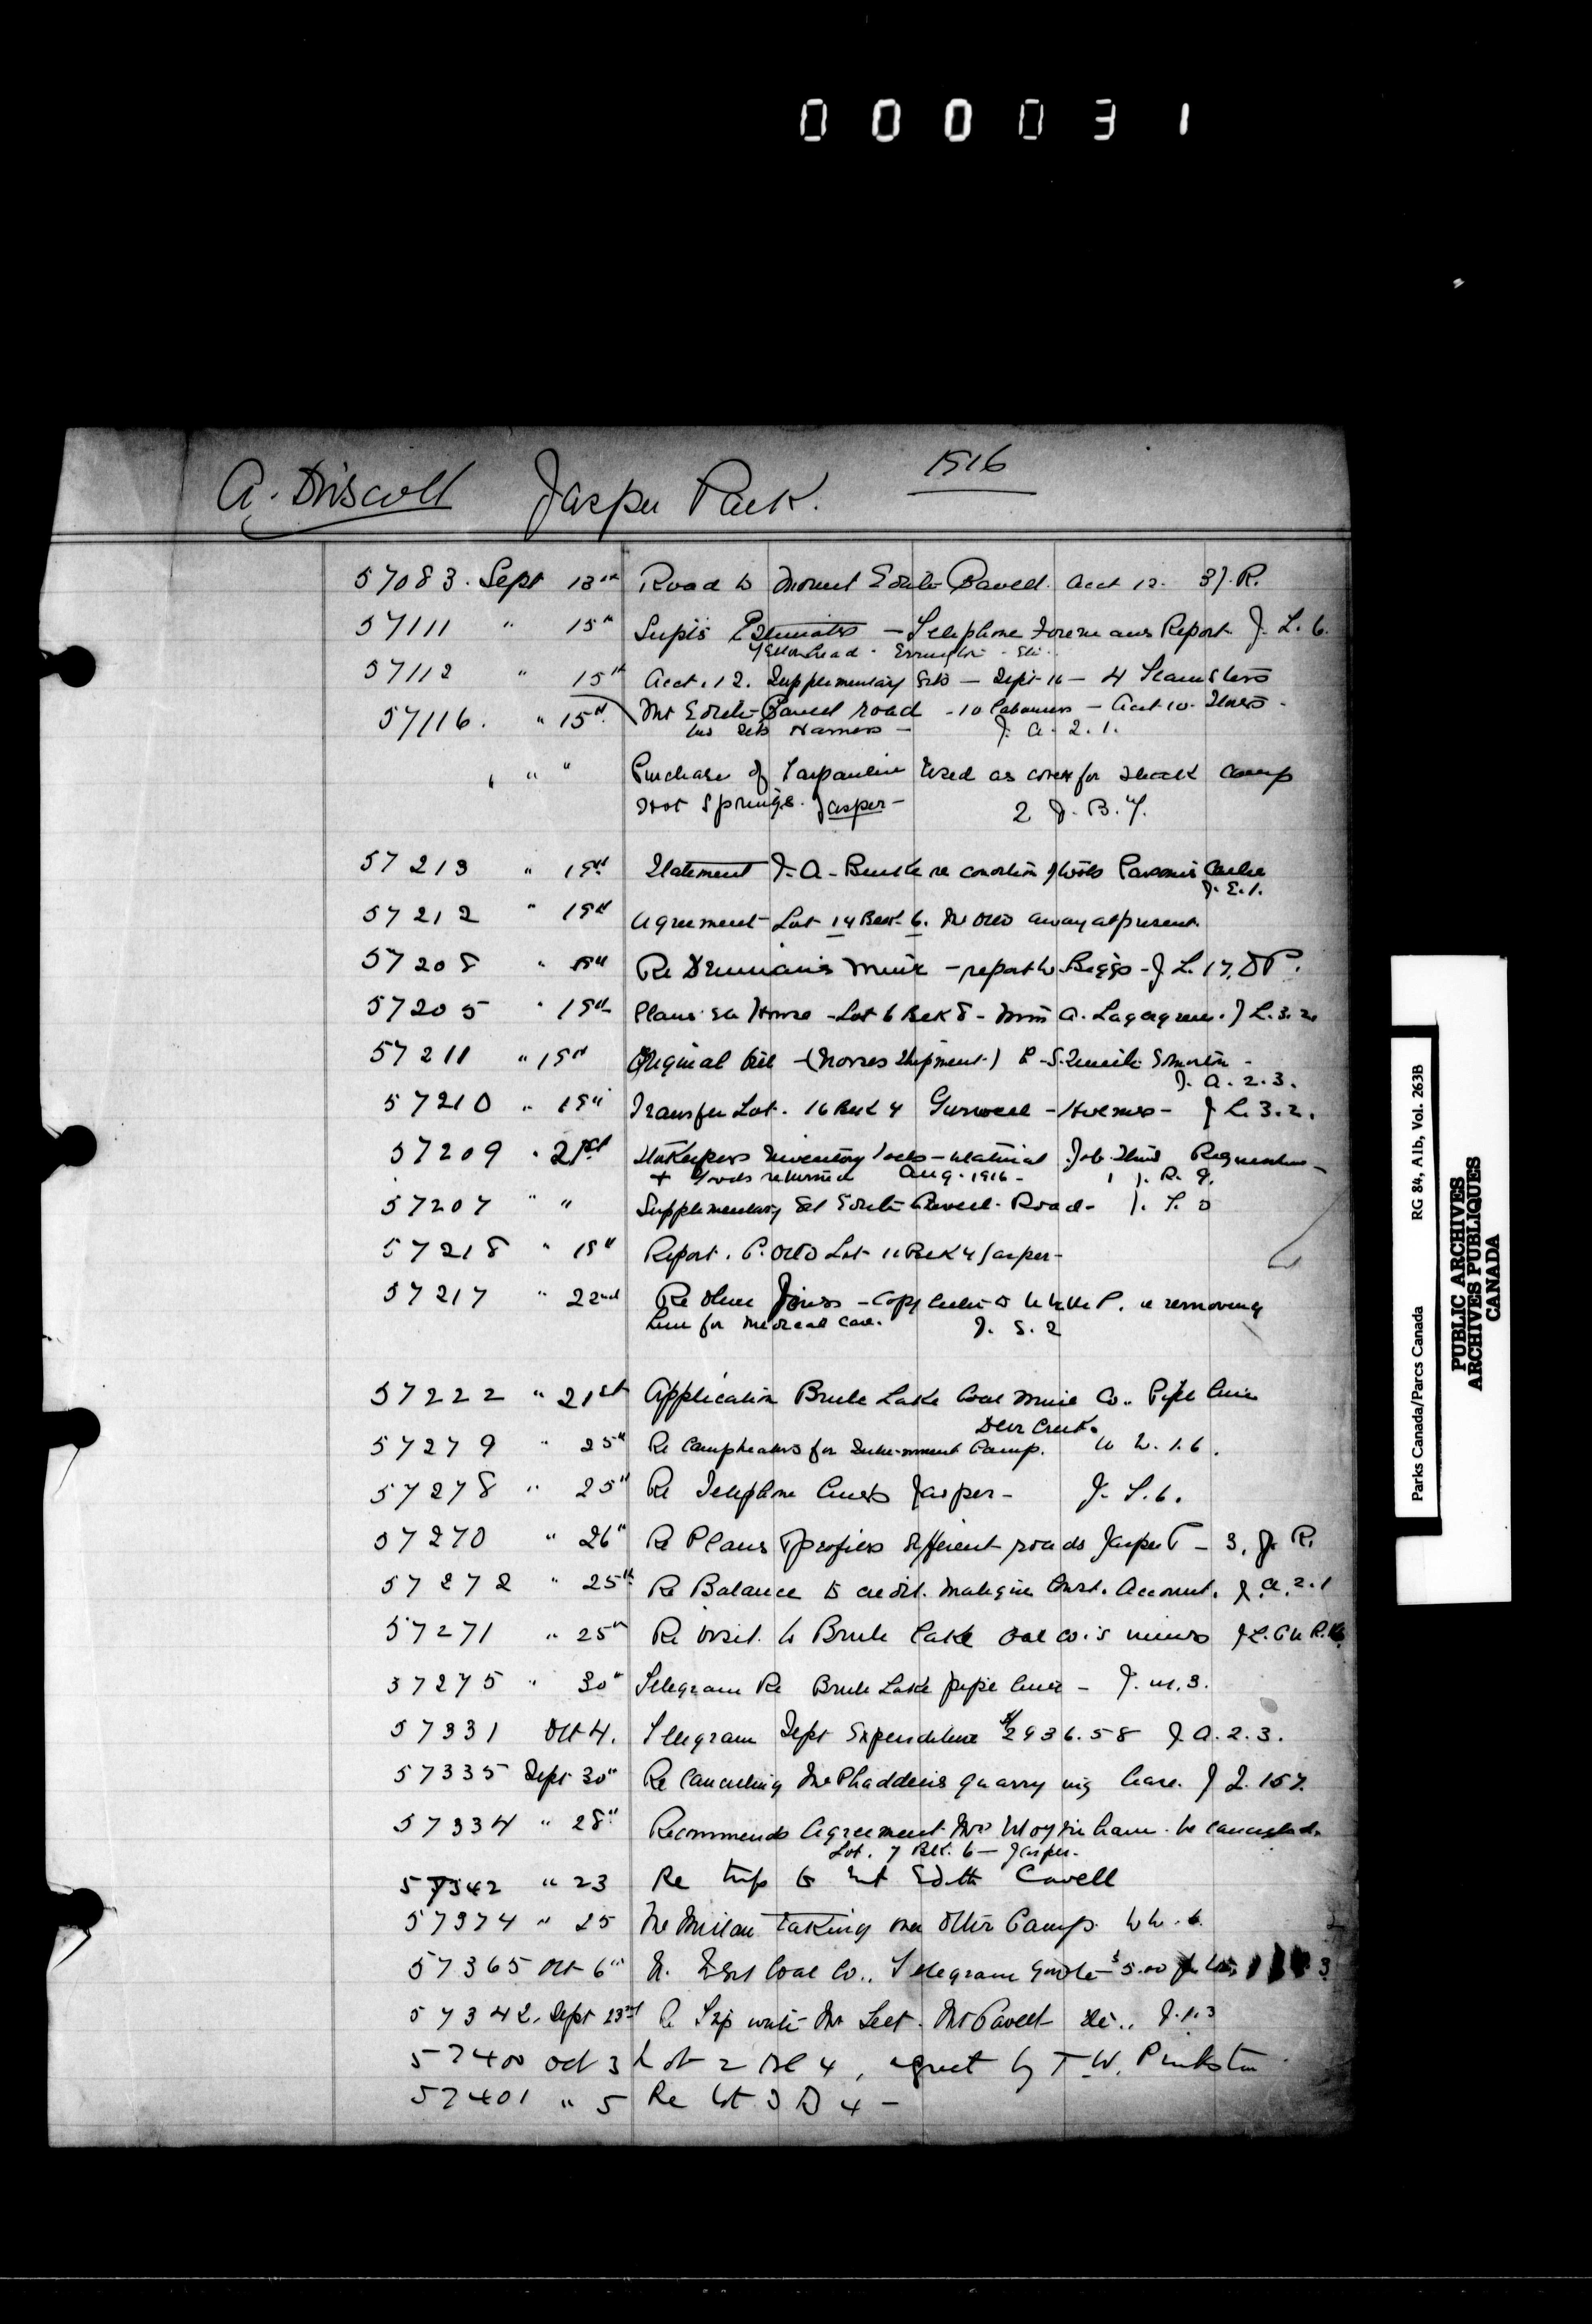 000031
A. Driscoll Jasper Park. 1916
57083. Sept 13th Road to Mount Edith Cavell. Acct 12. 3 J. R.
57111 " 15th Supt's Estimates — Telephone Foremans Report. J. L. 6.
Yellowhead - Errington - Etc.
57112 " 15th Acct. 12. Supplementary Ests — Sept 16 — 4 Teamsters
57116. " 15th Mt Edith Cavell road - 10 Labourers — Acct. 10.
two sets Harness — J. A. 2. 1.
" " Purchase of Tarpaulin used as cover for shack camp
Hot Springs. Jasper — 2 J. B. Y.
57213 " 19th Statement J. A. re condition of
J. E. 1.
57212 " 19th Agreement Lot 14 Block 6. Mr Otto away at present.
57208 " 19th Re Drummonds Mine — report to Beggs - J L. 17. D P.
57205 " 19th Plans House - Lot 6 Blck 8 - A. J L. 3. 2.
57211 " 19th Original Bill - (Horses Shipment) Edmonton -
J. A. 2. 3.
57210 " 19th Transfer Lot. 16 Blck 4 - Holmes - J L. 3. 2.
57209 " 21st Storekeepers Inventory tools - Material Job Time Requisitions -
+ Goods returned Aug. 1916 - 1 J. R. 9.
57207 " " Supplementary Est Edith Cavell Road - J. S.
57218 " 19th Report. C. Otto Lot 11 Blck 4 Jasper -
57217 " 22nd Re Oliver Jones - Copy letter to P. re removing
him for medical care. J. S. 2
57222 " 21st Application Brule Lake Coal Mine Co.. Pipe line
Deer Creek.
57279 " 25th Re Camp heaters for Internment Camp. W W. 1. 6.
57278 " 25th Re Telephone lines Jasper - J. S. 6.
57270 " 26th Re Plans & profiles different roads Jasper P - 3, J. R.
57272 " 25th Re Balance to credit. Maligne Const. Account. J. A. 2. 1
57271 " 25th Re visit to Brule Lake Coal Co.'s mines J L.
57275 " 30th Telegram Re Brule Lake pipe line - J. M. 3.
57331 Oct 4. Telegram Sept Expenditure $2936.58 J A. 2. 3.
57335 Sept 30th Re Cancelling McPhaddens quarrying lease. J Q. 157.
57334 " 28th Recommends Agreement Mrs Moynihan be cancelled.
Lot. 7 Blk. 6 — Jasper.
57342 " 23 Re trip to Mt Edith Cavell
57374 " 25 McMillan taking over Otto's Camp. W W. 6.
57365 Oct 6th N. West Coal Co.. Telegram quote $5.00 3
57342. Sept 23rd Re Trip with Mr Mt Cavell etc.. J. 1. 3
57400 Oct 3 Lot 2 Bl 4, agreet by T. W. Pinkston
57401 " 5 Re Lot 3 B 4 -
Parks Canada/Parcs Canada RG 84, A1b, Vol. 263B
PUBLIC ARCHIVES
ARCHIVES PUBLIQUES
CANADA